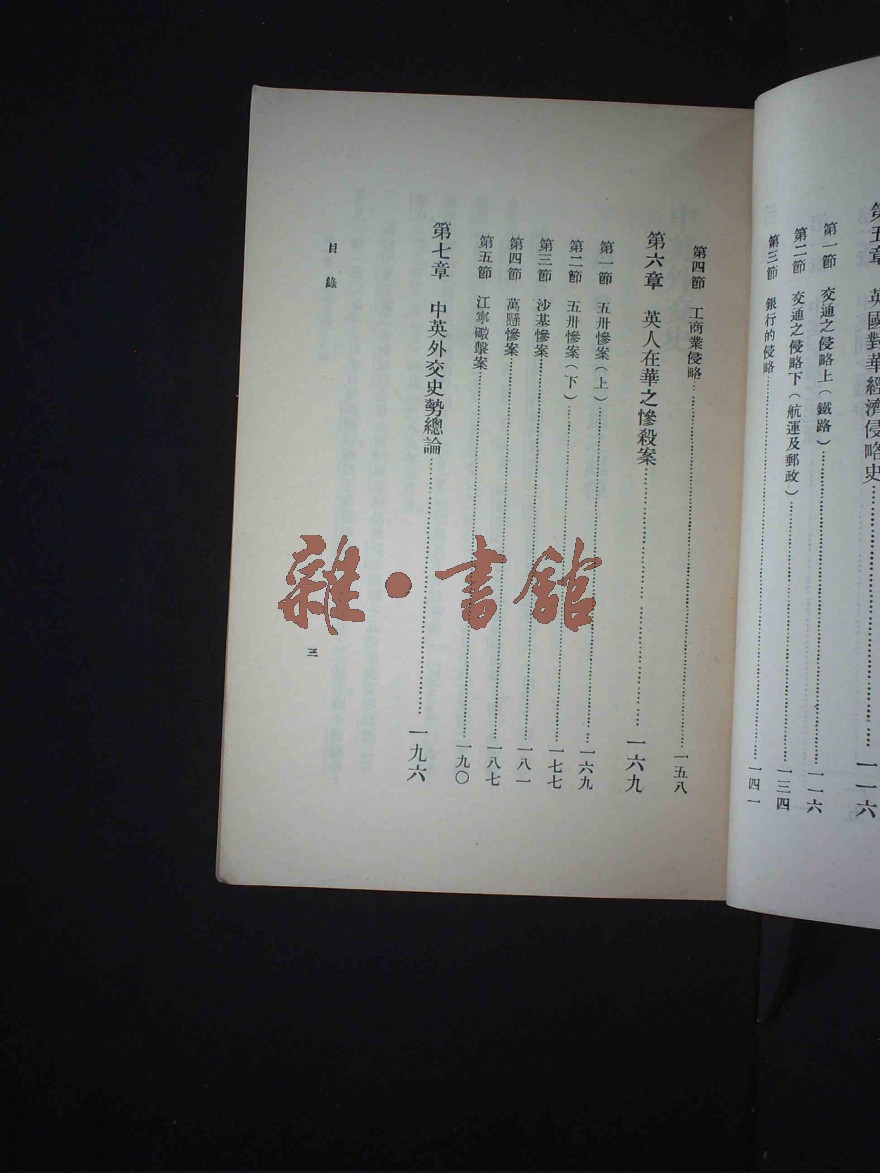 第五章　英國對華經濟侵略史……一一六
第一節　交通之侵略上（鐵路）……一一六
第二節　交通之侵略下（航運及郵政）……一三四
第三節　銀行的侵略……一四一
第四節　工商業侵略……一五八
第六章　英人在華之慘殺案……一六九
第一節　五卅慘案（上）……一六九
第二節　五卅慘案（下）……一七七
第三節　沙基慘案……一八一
第四節　萬縣慘案……一八七
第五節　江寧礮擊案……一九〇
第七章　中英外交史勢總論……一九六
目錄
三
雜·書館